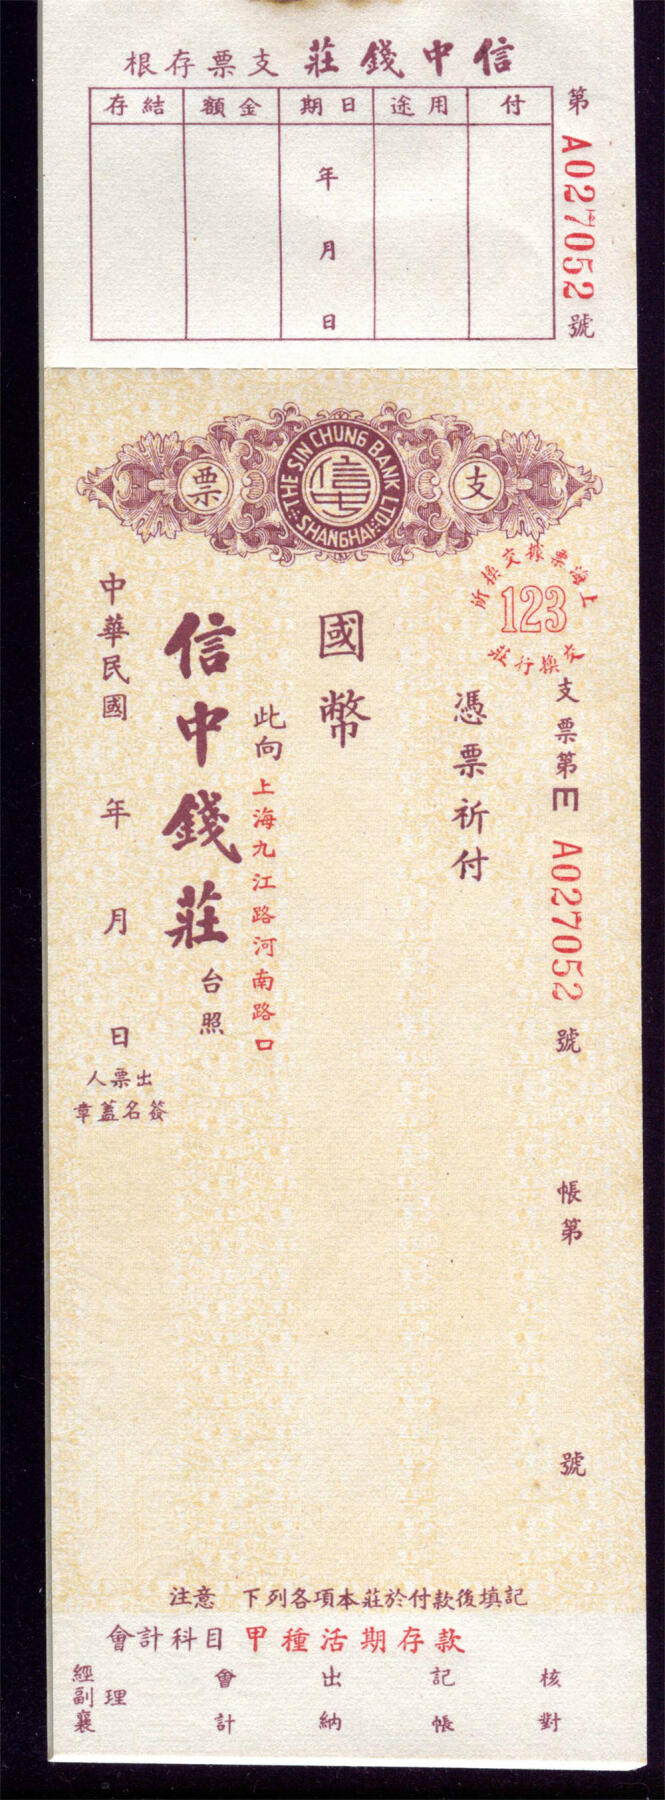 信中錢莊支票存根
付 用途 日期 金額 結存
年
月
日
第 A027052 號
THE SIN CHUNG BANK LTD.
SHANGHAI
支 票
上海票據交換所
123
交換行莊
支票第 E A027052 號
帳第 號
憑票祈付
國幣
此向上海九江路河南路口
信中錢莊台照
中華民國 年 月 日
出票人
簽名蓋章
注意 下列各項本莊於付款後填記
會計科目 甲種活期存款
核對
記帳
出納
會計
經副襄理